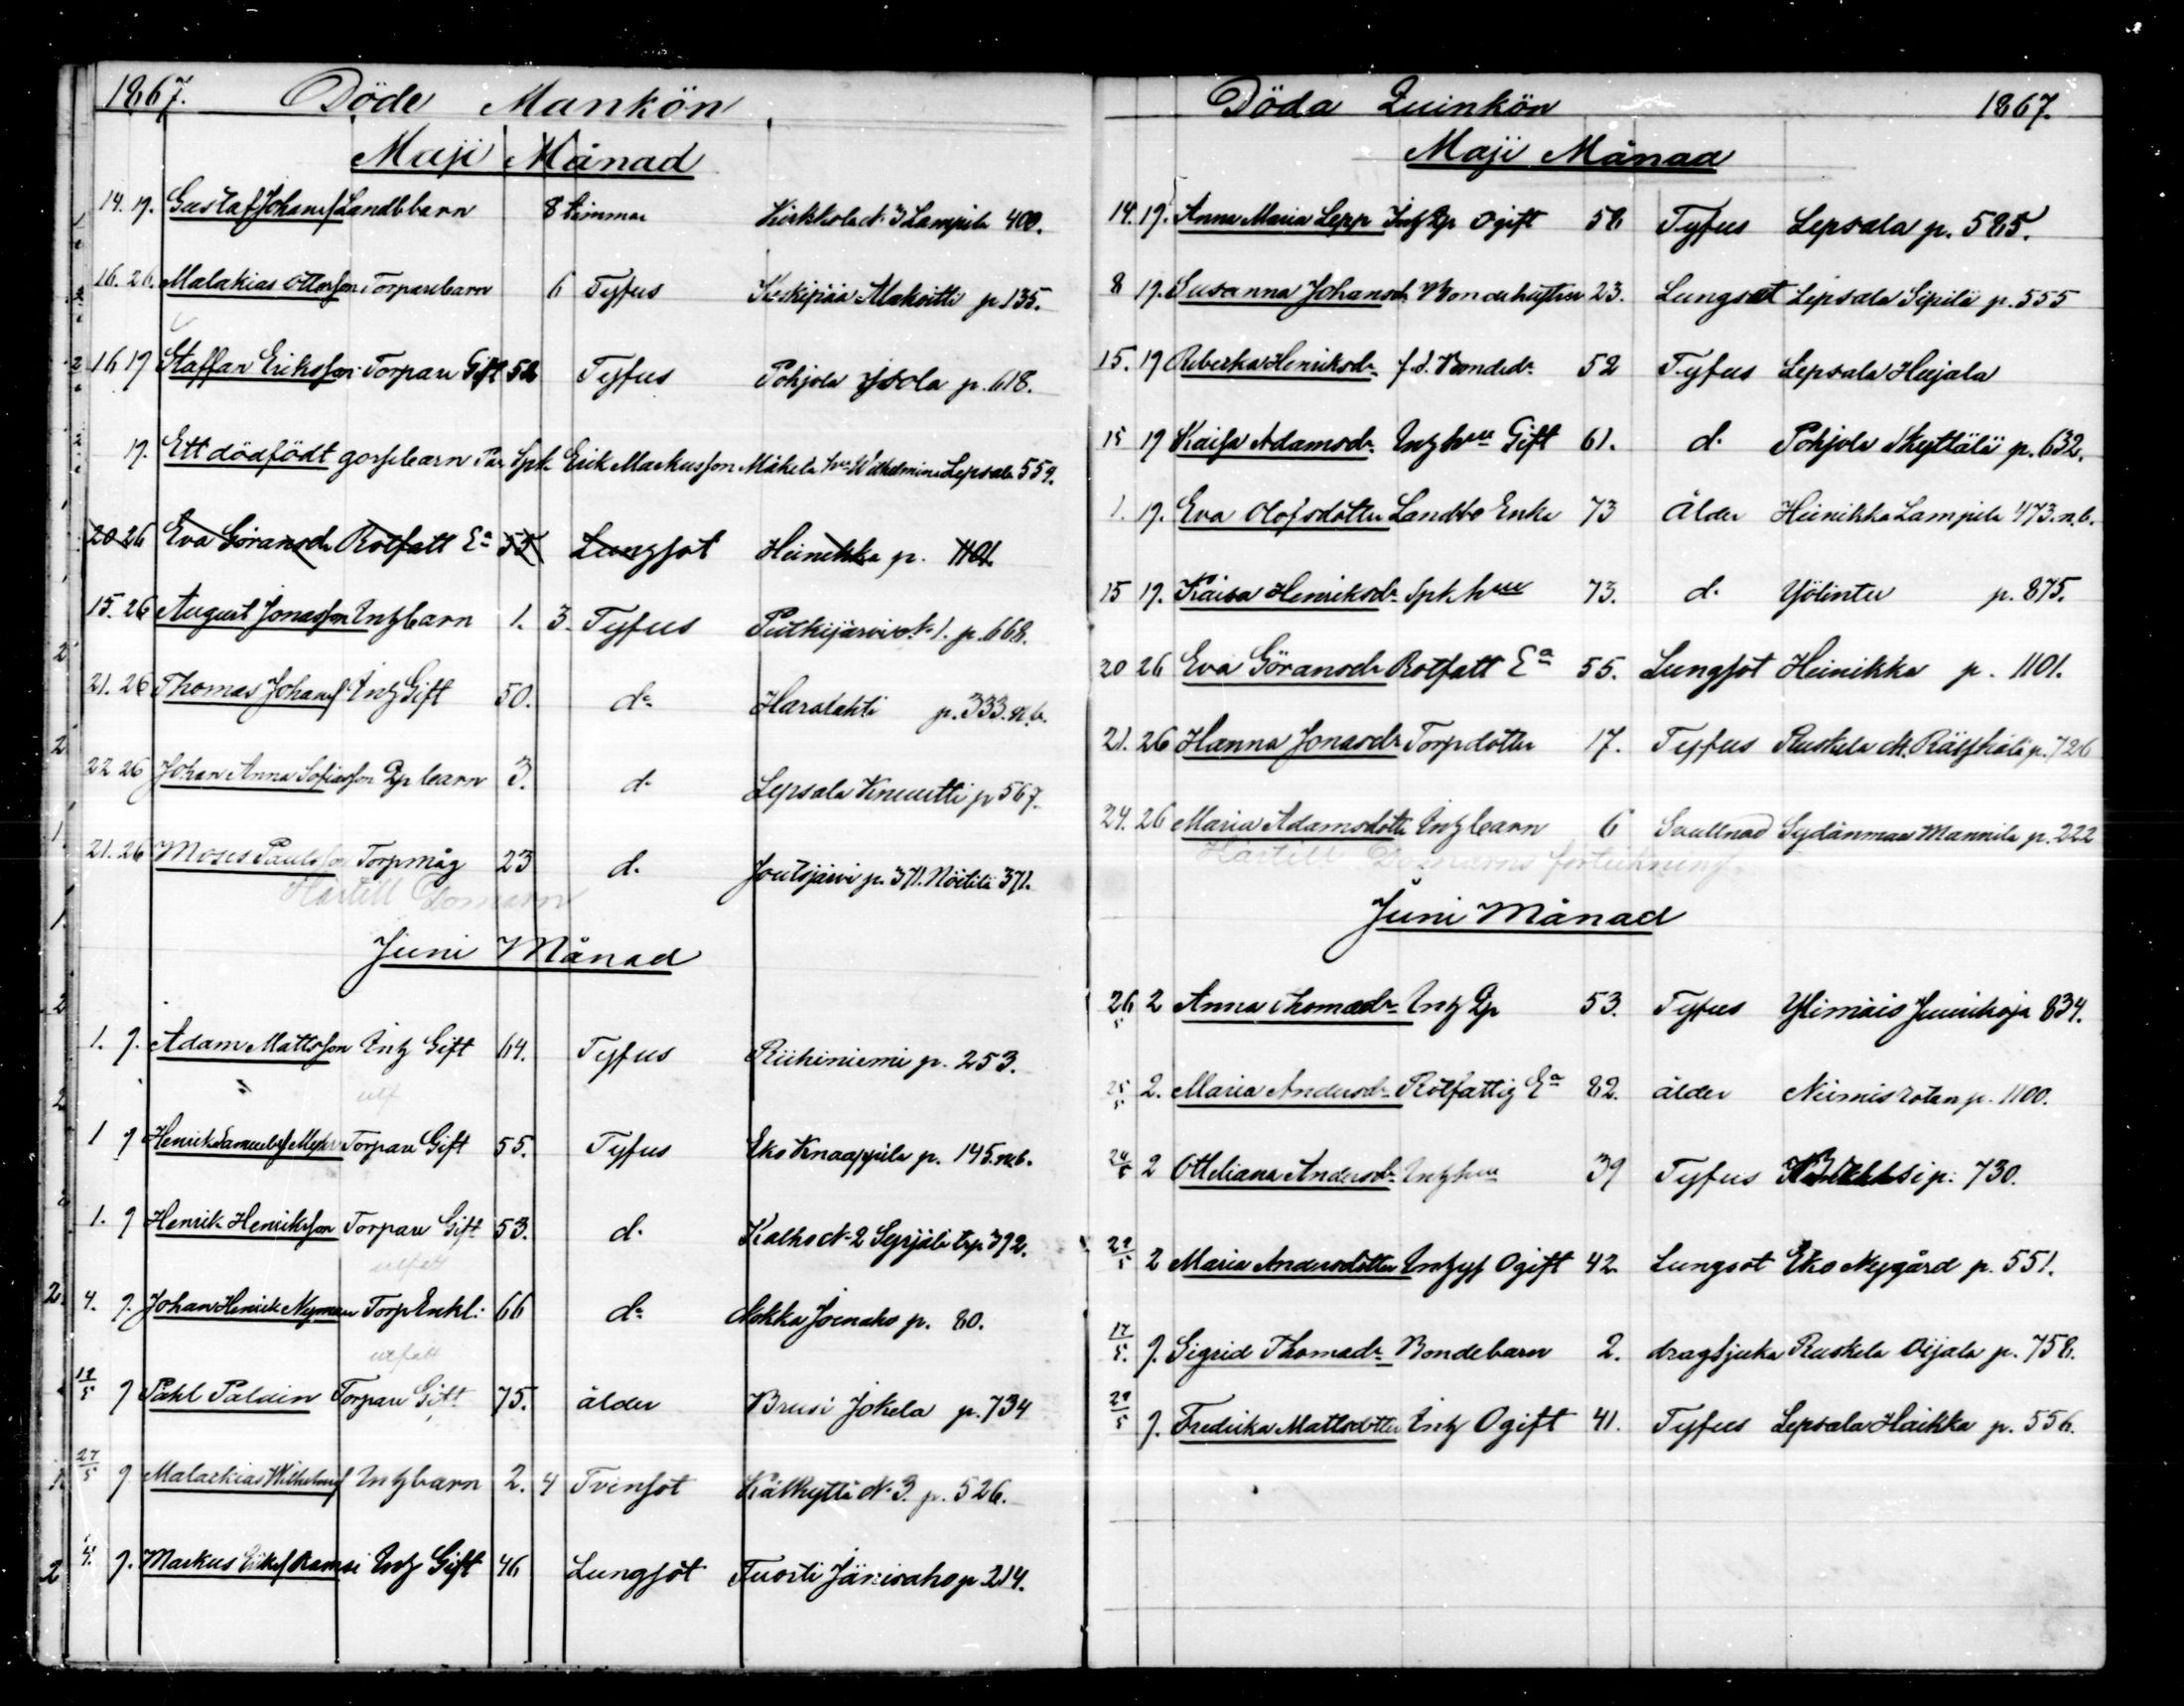 1867. Döde Mankön
Maji Månad
14. 19. Gustaf Johansf Landbbarn 8 timmar Kirkkola N. 3 Lampila 400.
16. 26. Malakias Ottosson Torparebarn 6 Tyfus Keskipää Alakoitti p 135.
16 19 Staffan Eriksson Torpare Gift 52 Tyfus Pohjola Isola p. 618.
19. Ett dödfödt gossebarn Spk Erik Markusson Mäkelä Wilhelmina Lepsala 559.
20 26 Eva Göransdr Rotfatt Ea 55 Lungsot Heinikka p. 1101.
15. 26 August Jonasson Inhbarn 1. 3. Tyfus Putkijärvi N. 1. p. 668.
21. 26 Thomas Johansf Inh Gift 50. do Haralahti p. 333. n.b.
22 26 Johan Anna Sofiasson Qp barn 3. d. Lepsala Knuutti p 567.
21. 26 Moses Paulsson Torpmåg 23 d. Joutsjärvi p. 371. 371.
Härtill Domarn
Juni Månad
1. 9. Adam Mattsson Inh Gift 64. Tyfus Riihiniemi p. 253.
utf
1 9 Henrik Torpare Gift 55. Tyfus Eko Knaappila p. 145. n.b.
1. 9 Henrik Henriksson Torpare Gift 53. d. Kalho N. 2 Syrjälä trp 392.
utfatt
4. 9. Johan Henrik Nyman Torp Enkl: 66 do Nokka Joenaho p. 80.
utfatt
18/5 9 Påhl Påldin Torpare Gift 75. ålder Brusi Jokela p. 734
27/5 9 Malackias Wilhelmsf Inhbarn 2. 4 Tvinsot Kälkyttä N. 3. p. 526.
4. 9. Markus Eriksf Ramsi Inh Gift 46 Lungsot Tuosti Jänisaho p. 214.
Döda Quinkön 1867.
Maji Månad
14. 19. Anna Maria Lepp Inh Qp Ogift 58 Tyfus Lepsala p. 585.
8 19. Susanna Johansdr Bondehustru 23. Lungsot Lepsala Sipilä p. 555
15. 19 Rebecka Henriksdr f.d. Bondedr 52 Tyfus Lepsala Heijala
15 19 Kaisa Adamsdr Inhhru Gift 61. d. Pohjola Skyttälä p. 632.
1. 19. Eva Olofsdotter Landbo Enka 73 Ålder Heinikka Lampila 473. n.b.
15 19. Kaisa Henriksdr Spkhru 73. d. Yölintu p. 875.
20 26 Eva Göransdr Rotfatt Ea 55. Lungsot Heinikka p. 1101.
21. 26 Hanna Jonasdr Torpdotter 17. Tyfus Ruskela N. Räyhälä p. 726
24. 26 Maria Adamsdotter Inhbarn 6 Svullnad Sydänmaa Mannila p. 222
Härtill Domarns förteckning
Juni Månad
26/5 2 Anna Thomasdr Inh Qp 53. Tyfus Ylimäis Junikoja 834.
25/5 2. Maria Andersdr Rotfattig Ea 82. ålder Niemis roten p. 1100.
24/5 2 Otteliana Andersdr Inhhru 39 Tyfus p: 730.
29/5 2 Maria Andersdotter Ogift 42 Lungsot Eko Nygård p. 551.
17/5. 9. Sigrid Thomasdr Bondebarn 2. dragsjuka Ruskela Oijala p. 758.
29/5 9. Fredrika Mattsdotter Inh Ogift 41. Tyfus Lepsala Haikka p. 556.